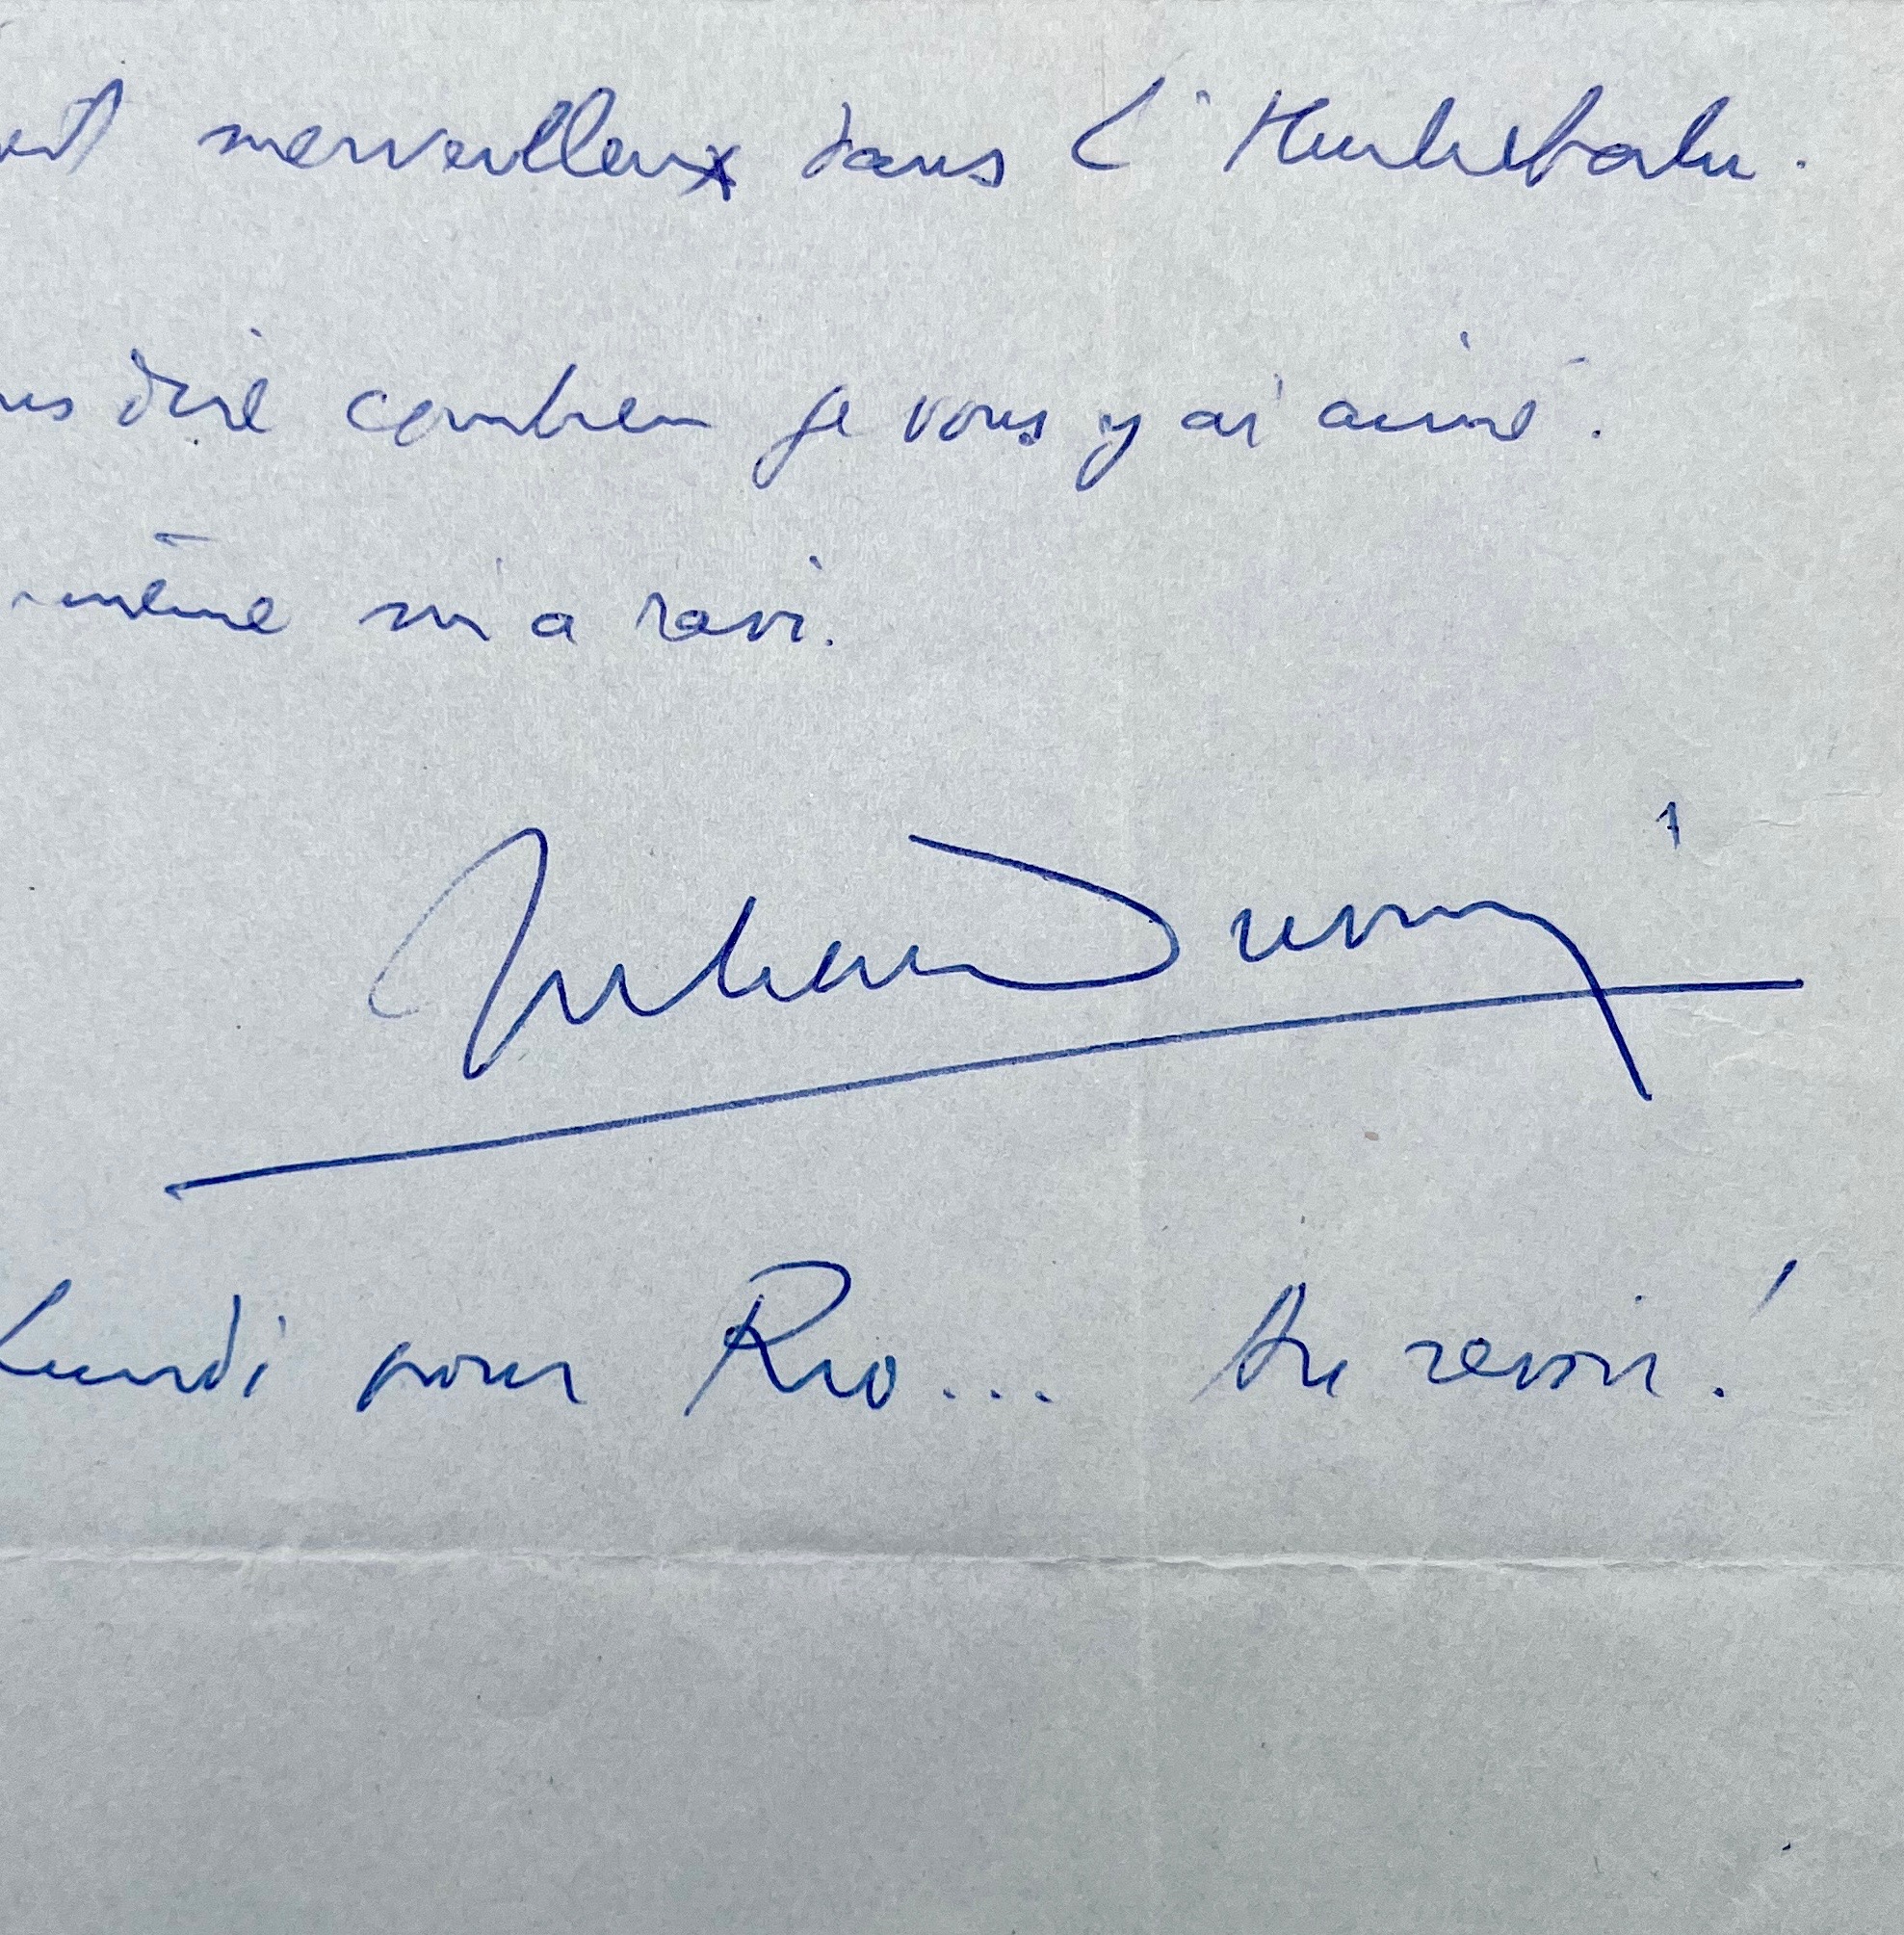 merveilleux dans l'Hurluberlu.
dire combien je vous y ai aimé.
-même m'a ravi.
Julien Duvivier
Lundi pour Rio... Au revoir!